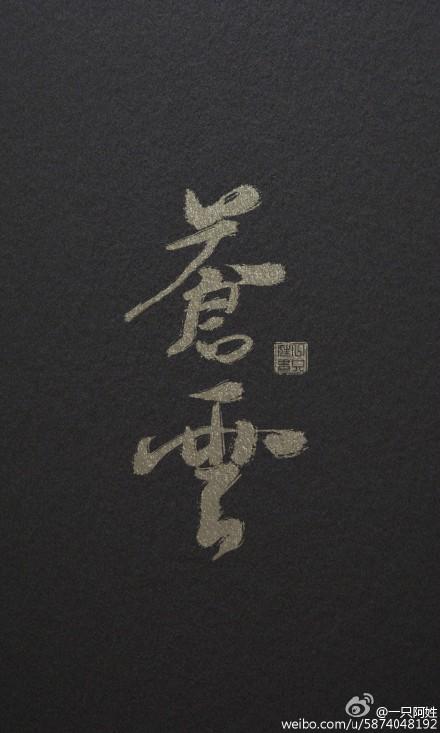 蒼雲
@一只阿姓
weibo.com/u/5874048192